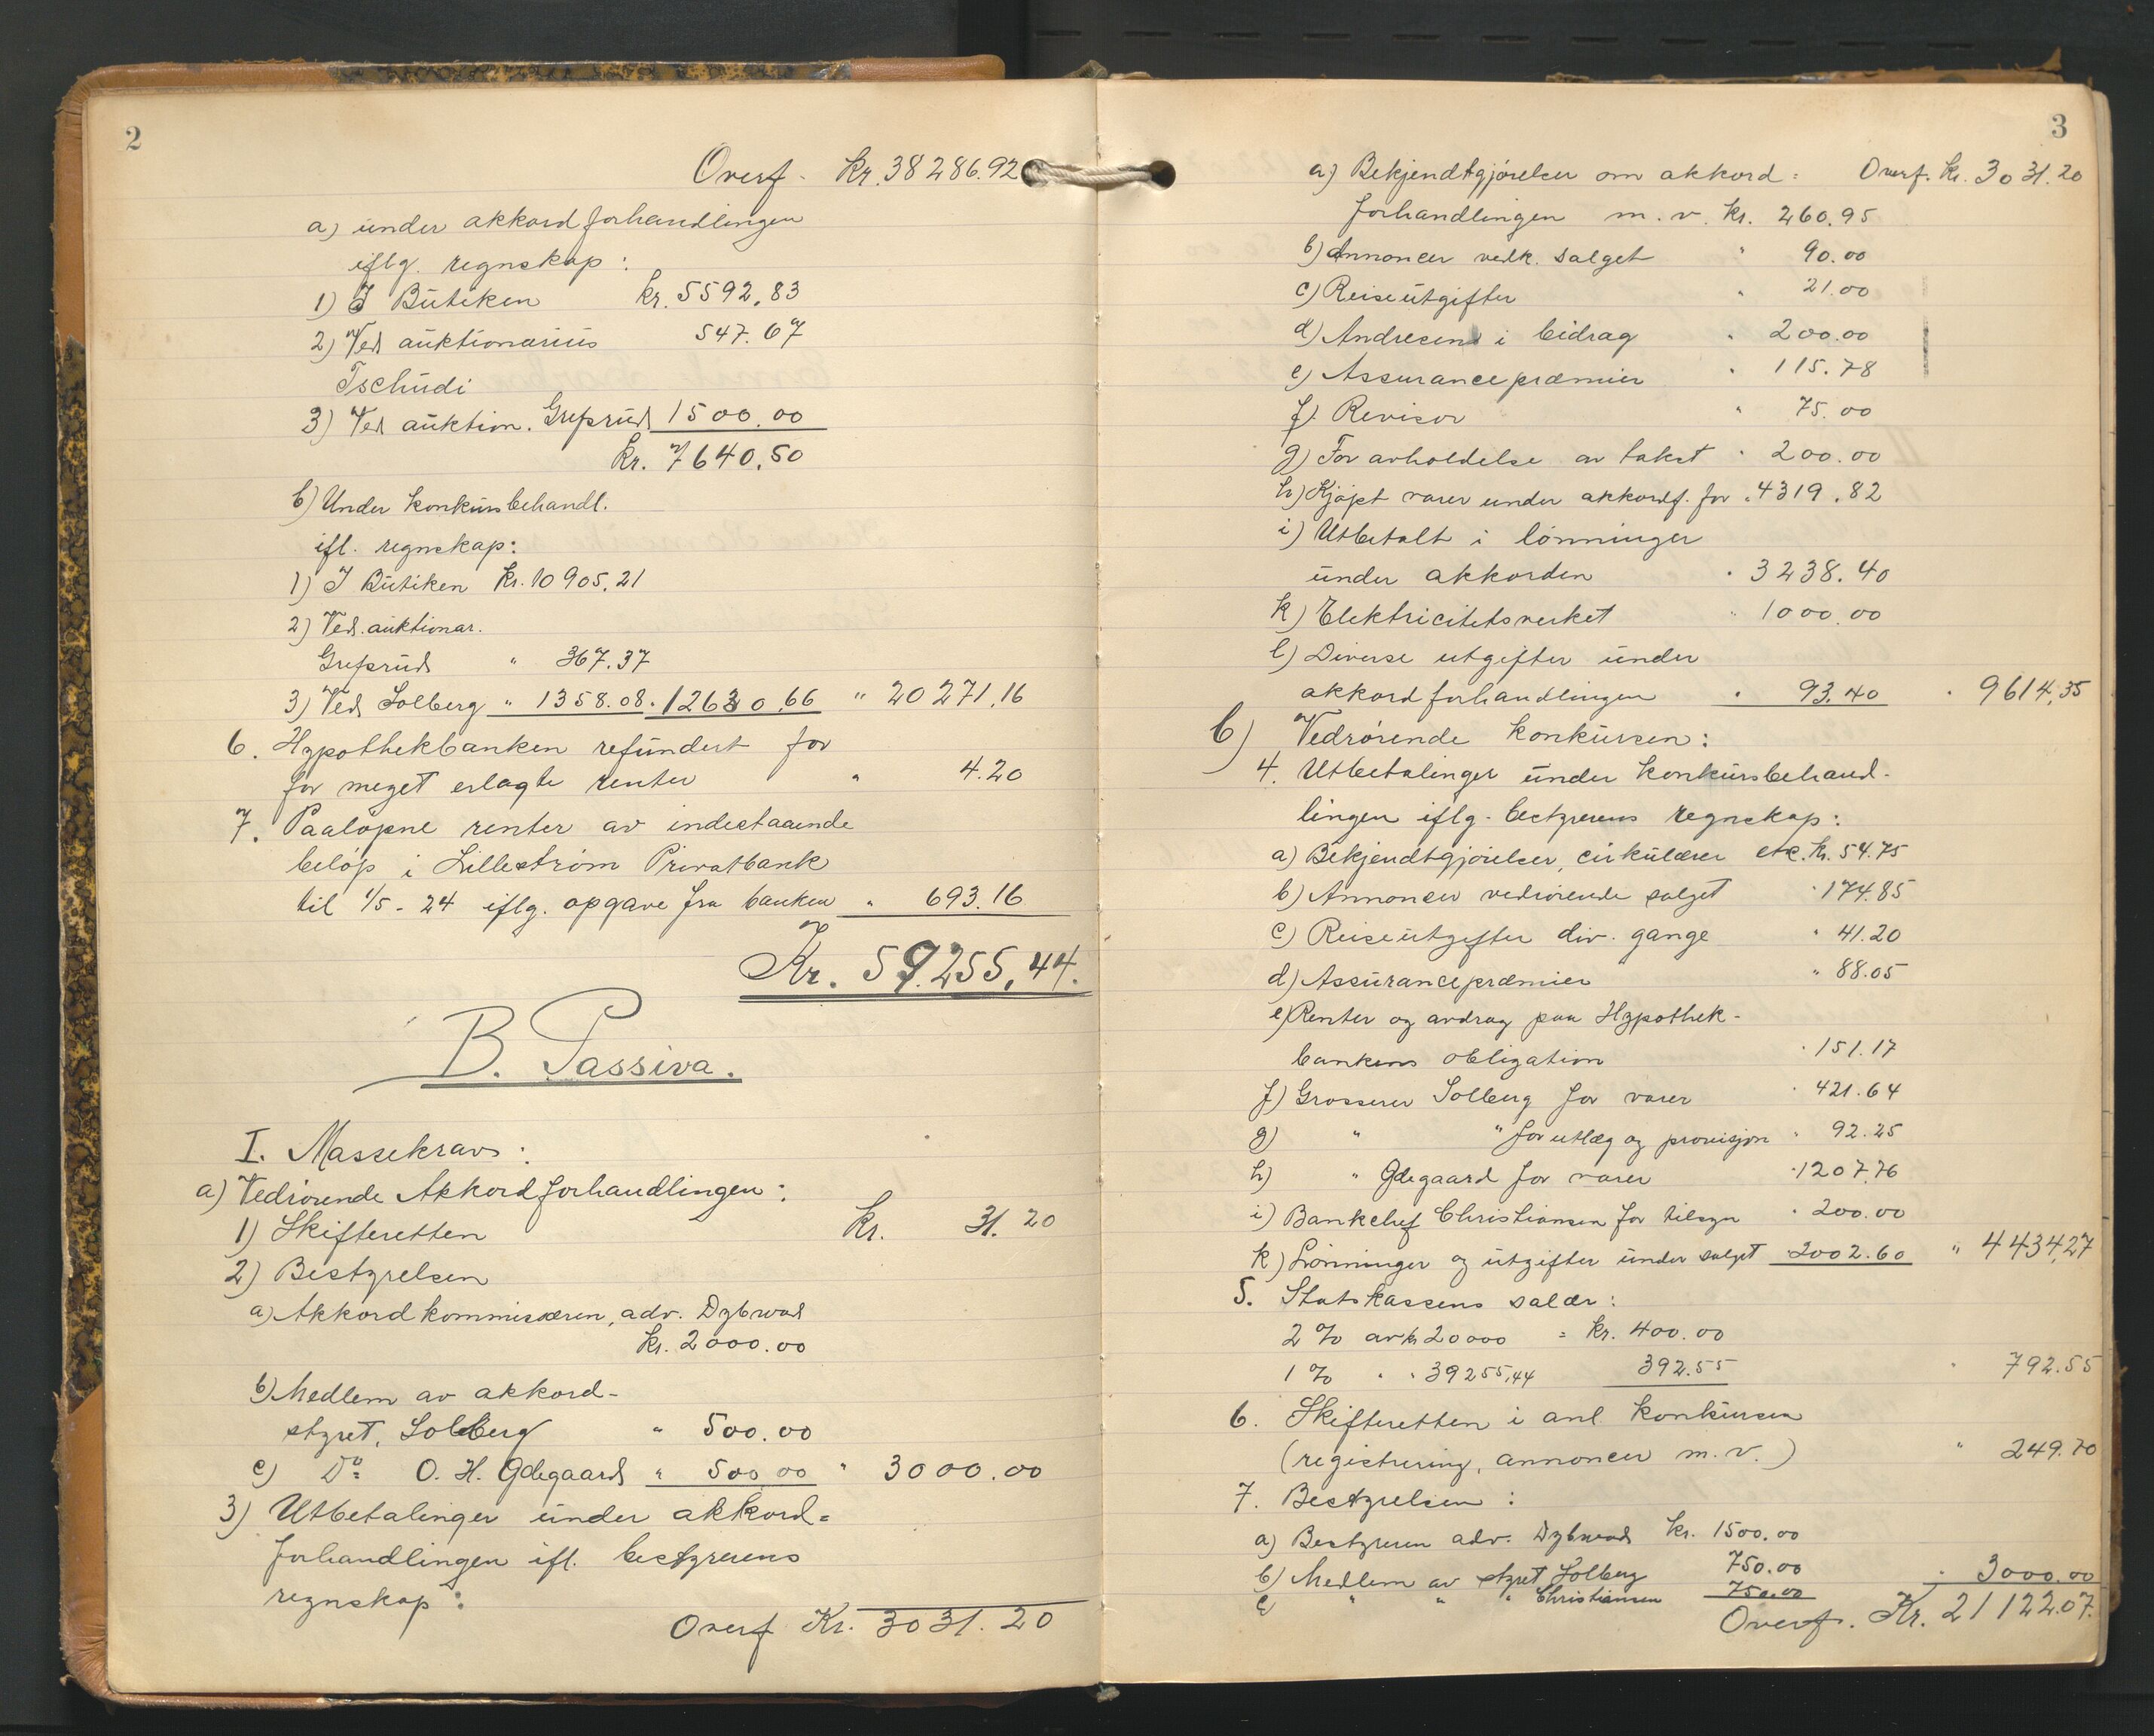 2
Overf. Kr. 38286.92
a) under akkordforhandlingen
iflg. regnskap:
1) I Butiken kr. 5592,83
2) Ved auktionarius 547.67
Tschudi
3) Ved auktion. Grefsrud 1500.00
kr. 7640,50
b) Under konkursbehandl.
ifl. regnskap:
1) I Butiken kr. 10905,21
2) Ved. auktionar.
Grefsrud " 367.37
3) Ved Solberg " 1358.08 " 12630,66 " 20271,16
6. Hypothekbanken refundert for
for meget erlagte renter " 4.20
7. Paaløpne renter av indestaaende
beløp i Lillestrøm Privatbank
til 1/5 - 24 iflg. opgave fra banken " 693.16
Kr. 59.255,44.
B. Passiva.
I. Massekrav:
a) Vedrørende Akkordforhandlingen:
1) Skifteretten kr. 31.20
2) Bestyrelsen
a) Akkordkommisæren, adv. Dybwad
kr. 2000.00
b) Medlem av akkord-
styret, Solberg " 500.00
c) Do O. H. Ødegaard " 500.00 " 3000.00
3) Utbetalinger under akkord=
forhandlingen ifl. bestyrerens
regnskap:
Overf Kr. 3031.20
3
a) Bekjendtgjørelser om akkord= Overf. kr. 3031.20
forhandlingen m. v. kr. 260.95
b) Annoncer vedk. salget " 90.00
c) Reiseutgifter " 21.00
d) Andresen i bidrag " 200.00
e) Assurancepræmier " 115.78
f) Revisor " 75.00
g) For avholdelse av takst " 200.00
h) Kjøpt varer under akkordf. for " 4319.82
i) Utbetalt i lønninger
under akkorden " 3238.40
k) Elektricitetsverket " 1000.00
l) Diverse utgifter under
akkordforhandlingen " 93.40 " 9614,35
b) Vedrørende konkursen:
4. Utbetalinger under konkursbehand-
lingen iflg. bestyrerens regnskap:
a) Bekjendtgjørelser, cirkulærer etc. kr. 54.75
b) Annoncer vedrørende salget " 174.85
c) Reiseutgifter div. gange " 41.20
d) Assurancepræmier " 88.05
e) Renter og avdrag paa Hypothek-
bankens obligation " 151.17
f) Grosserer Solberg for varer " 421.64
g) " " for utlæg og provisjon " 92.25
h) " Ødegaard for varer " 1207,76
i) Bankchef Christiansen for tilsyn " 200.00
k) Lønninger og utgifter under salget 2002.60 " 4434,27
5. Statskassens salær:
2 % av kr 20000 = kr. 400.00
1 % " " 39255,44 392.55 " 792.55
6. Skifteretten i anl. konkursen
(registrering, annoncer m. v.) " 249.70
7. Bestyrelsen:
a) Bestyreren adv. Dybwad kr. 1500.00
b) Medlem av styret Solberg 750.00
c) " " " Christiansen 750.00 " 3000.00
Overf. Kr. 21122.07.